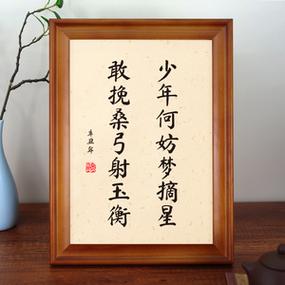 少年何妨梦摘星
敢挽桑弓射玉衡
辛丑年